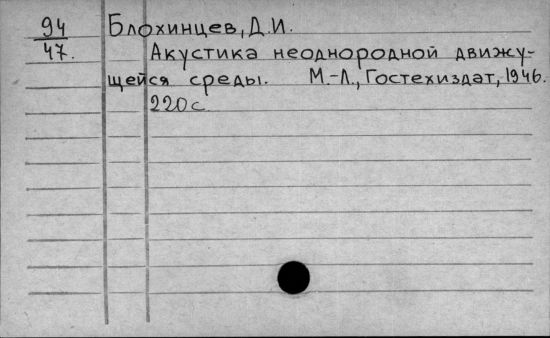 94 Блохинцев, Д.И.
47. Акустика неоднородной движу-
щейся среды. М.-Л., Гостехиздат, 1946.
220с